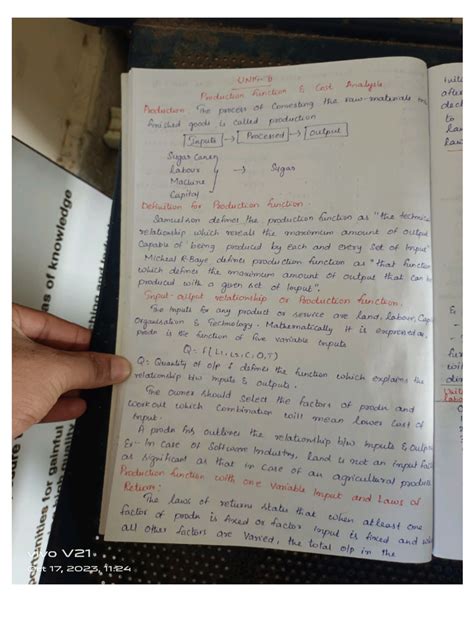 UNIT-III
Production Function & Cost Analysis
Production: The process of Converting the raw-materials into
finished goods is called production
Inputs → Processed → output
Sugar Canes
Labour
Machine
Capital
→ Sugar
Definition for Production function.
Samuelson defines the production function as "the technical
relationship which reveals the maximum amount of output
Capable of being produced by each and every set of Input"
Micheal R-Baye defines production function as "that function
which defines the maximum amount of output that can be
produced with a given set of Input".
Input-output relationship or Production function.
The Inputs for any product or service are land, labour, Capi
Organisation & Technology. Mathematically It is expressed as.
prodn is the function of five variable Inputs
Q = F(L1, L2, C, O, T)
Q = Quantity of o/p & defines the function which explains the
relationship b/w Inputs & outputs.
The owner should select the factors of prodn and
work out which Combination will mean lower Cost of
Input.
A prodn fns outlines the relationship b/w Inputs & outpu
Ex:- In Case of Software Industry, land is not an Input fac
as significant as that in case of an agricultural produc
Production function with one Variable Input and Laws of
Return:
The laws of returns states that when atleast one
factor of prodn is fixed or factor input is fixed and wh
all other factors are Varied, the total o/p in the
as of knowledge
vivo V21
Oct 17, 2023, 11:24